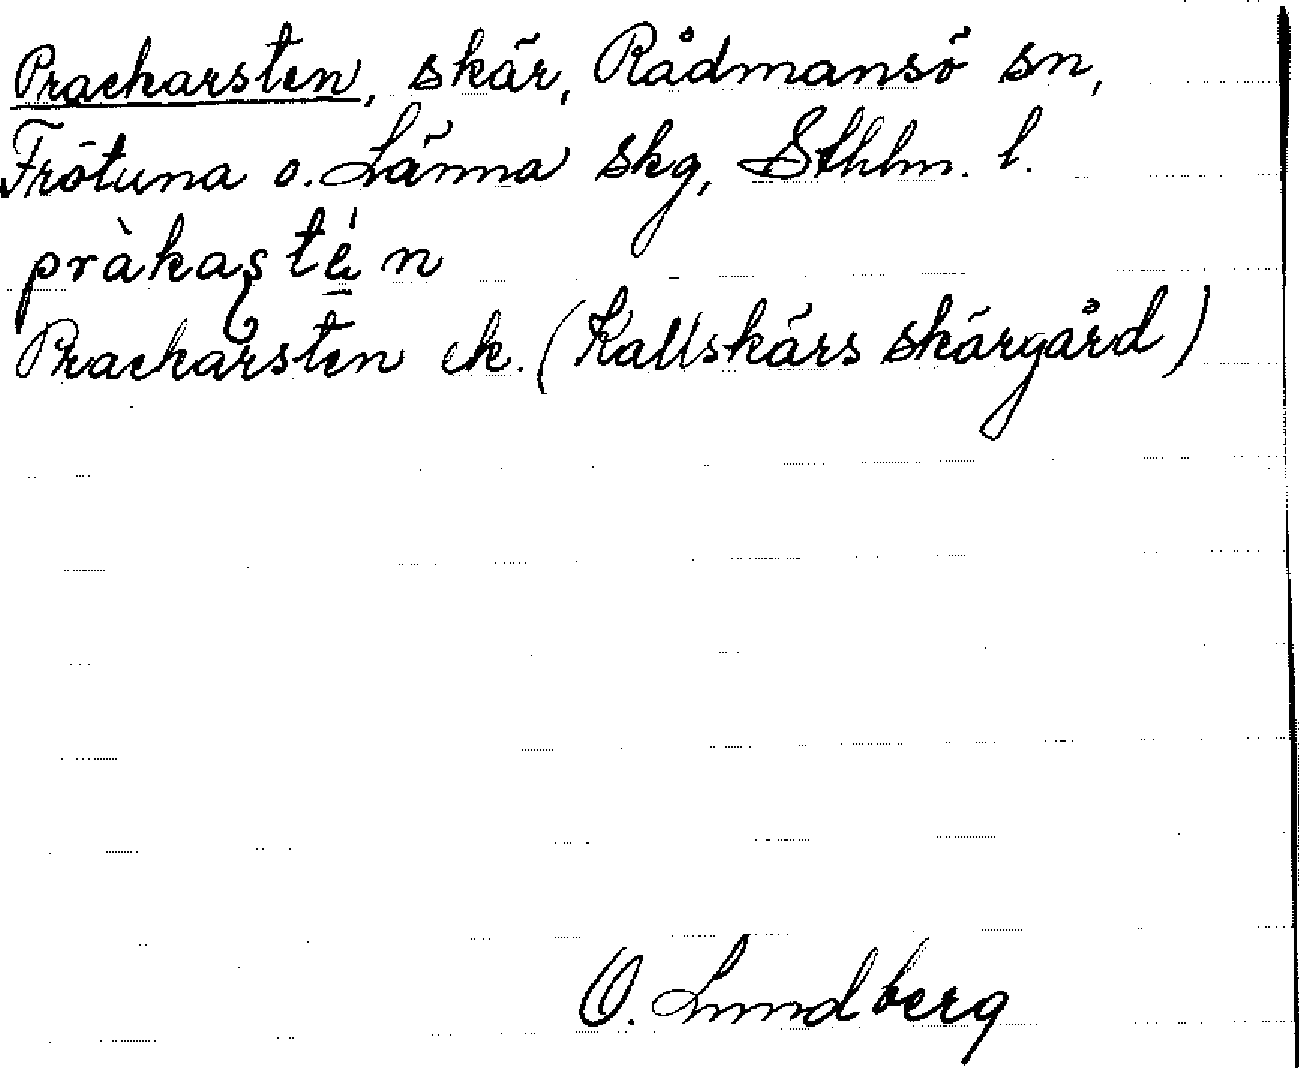 Prackarsten, skär, Rådmansö sn,
Frötuna o. Länna skg, Sthlm. l.
pràkastén
Prackarsten ek. (Kallskärs skärgård)
O. Lundberg